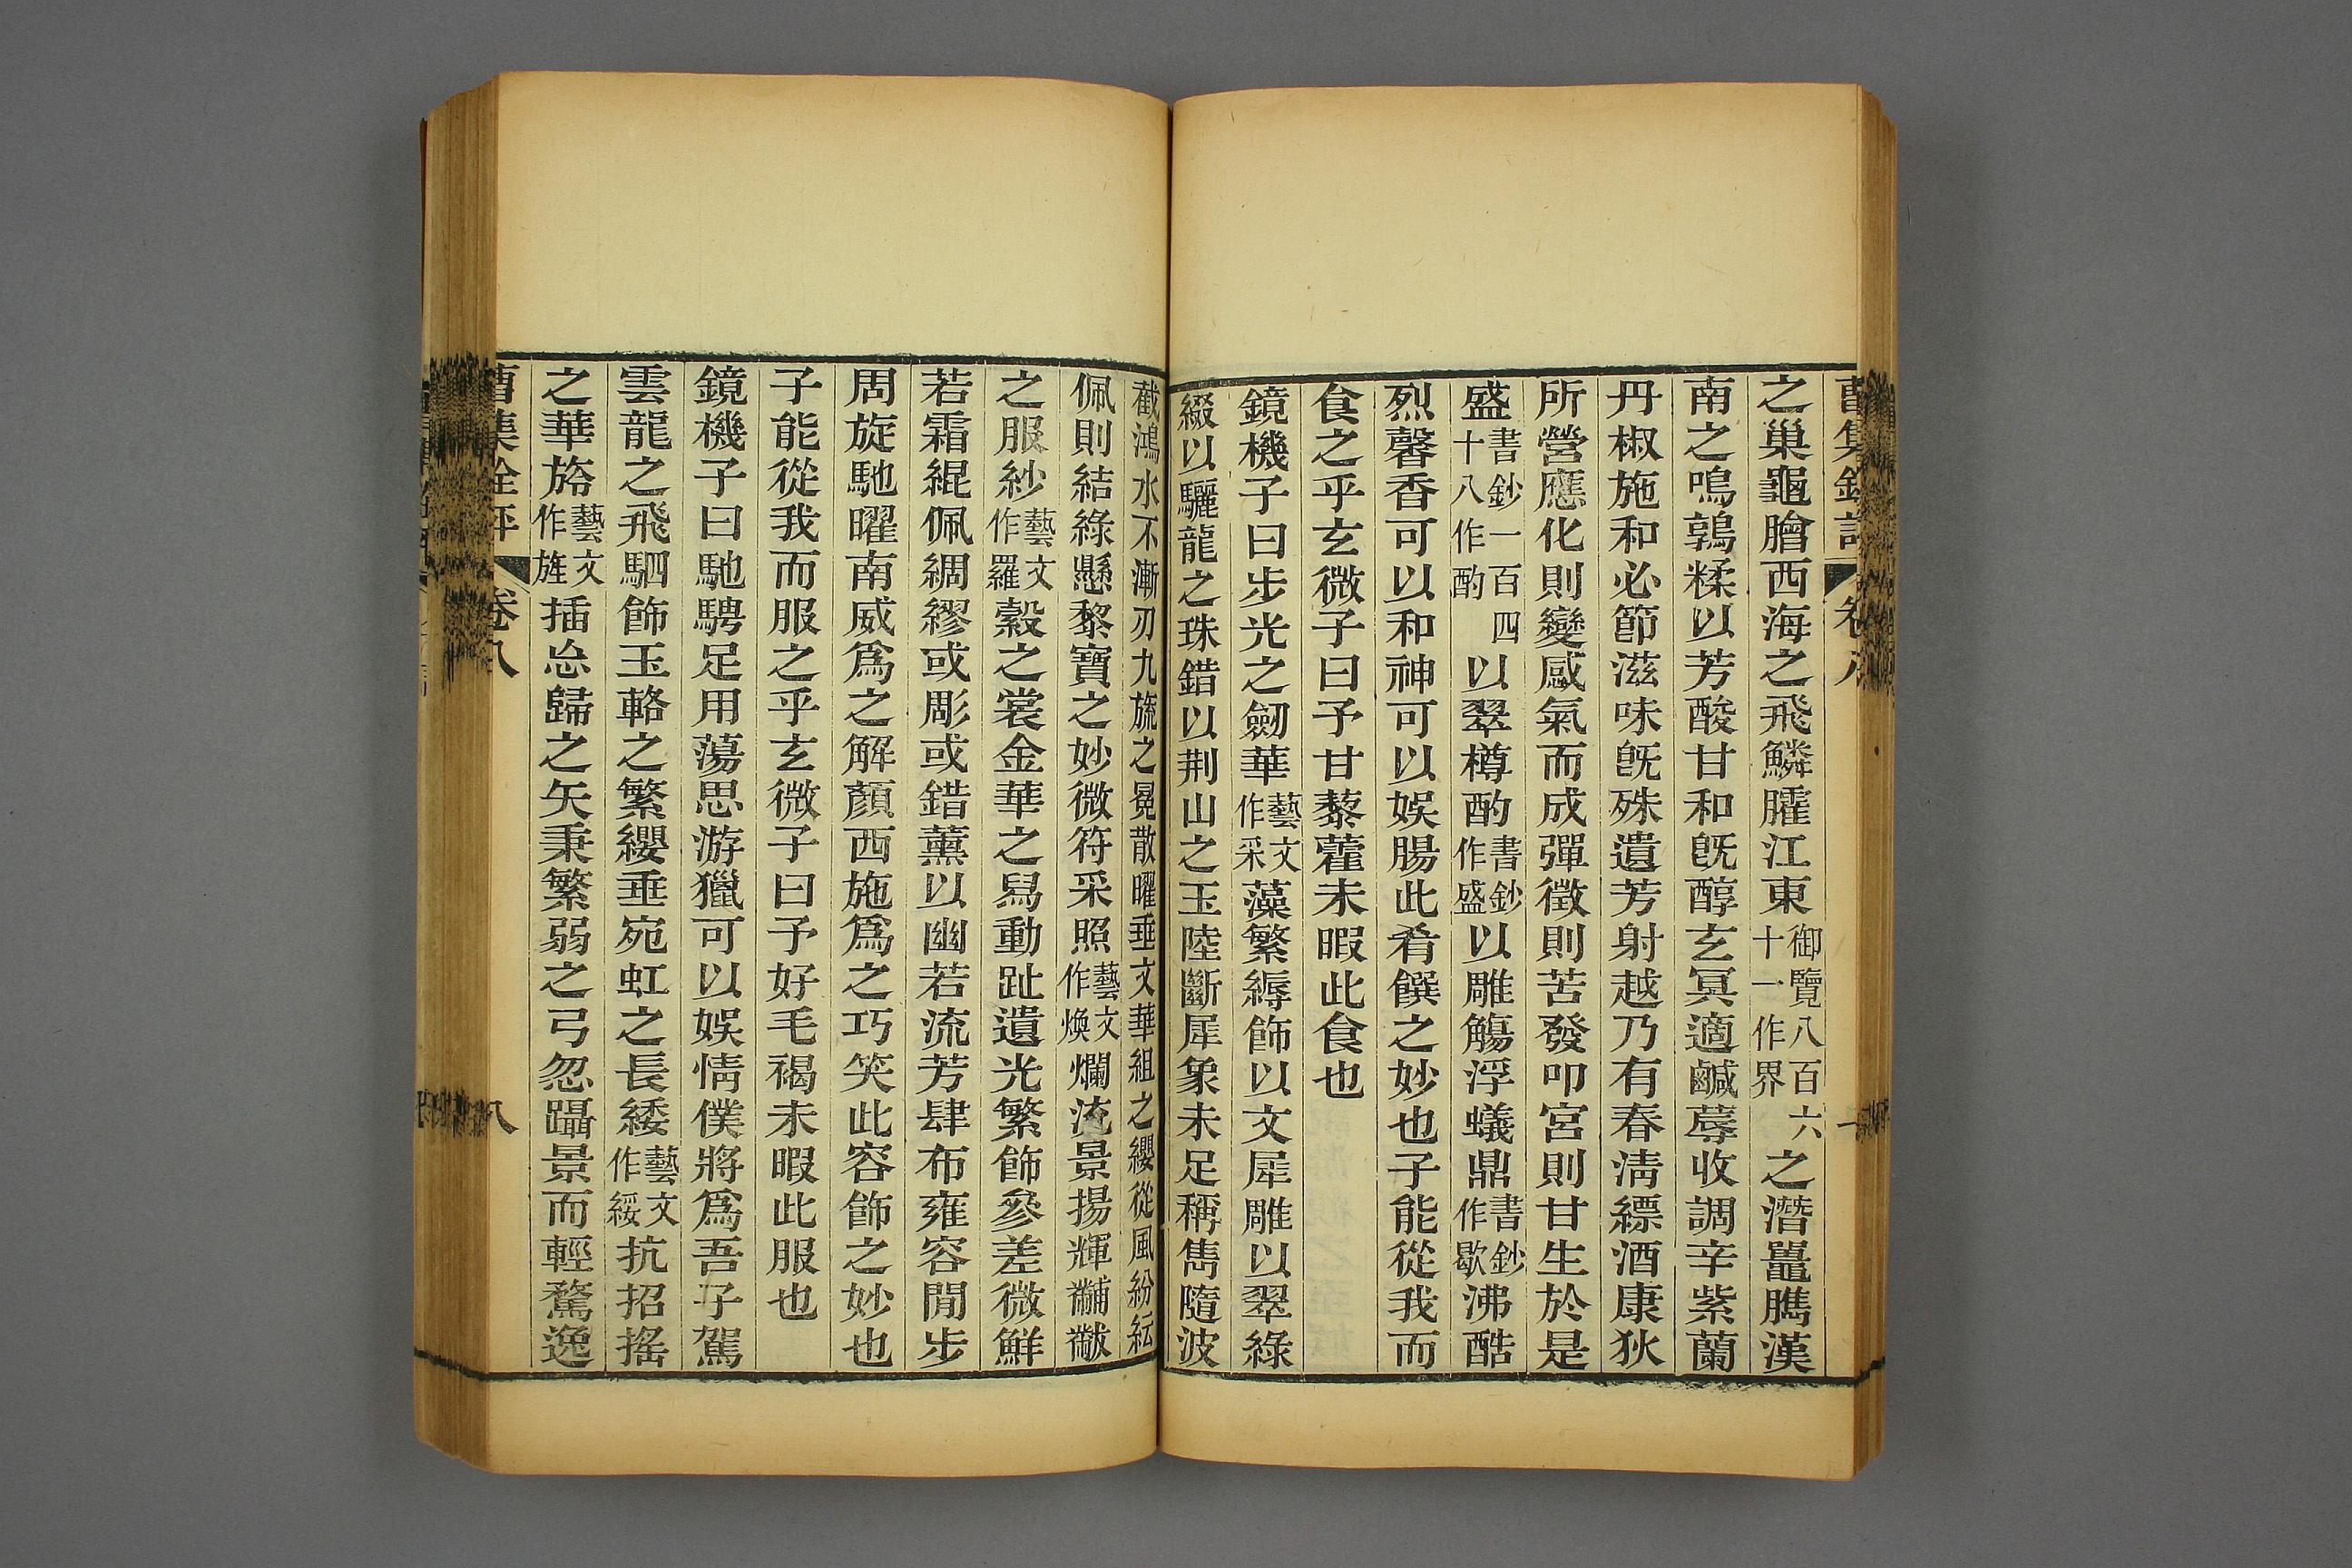 之巢龜膾西海之飛鱗臛江東御覽八百六十一作界之潛鼉臇漢
南之鳴鶉糅以芳酸甘和旣醇玄冥適鹹蓐收調辛紫蘭
丹椒施和必節滋味旣殊遺芳射越乃有春淸縹酒康狄
所營應化則變感氣而成彈徵則苦發叩宮則甘生於是
盛書鈔一百四十八作酌以翠樽酌書鈔作盛以雕觴浮蟻鼎書鈔作歇沸酷
烈馨香可以和神可以娛腸此肴饌之妙也子能從我而
食之乎玄微子曰予甘藜藿未暇此食也
鏡機子曰步光之劒華藝文作采藻繁縟飾以文犀雕以翠綠
綴以驪龍之珠錯以荆山之玉陸斷犀象未足稱雋隨波
截鴻水不漸刃九旒之冕散曜垂文華組之纓從風紛紜
佩則結綠懸黎寶之妙微符采照藝文作煥爛流景揚輝黼黻
之服紗藝文作羅縠之裳金華之舄動趾遺光繁飾參差微鮮
若霜緄佩綢繆或彫或錯薰以幽若流芳肆布雍容閒步
周旋馳曜南威爲之解顏西施爲之巧笑此容飾之妙也
子能從我而服之乎玄微子曰予好毛褐未暇此服也
鏡機子曰馳騁足用蕩思游獵可以娛情僕將爲吾子駕
雲龍之飛駟飾玉輅之繁纓垂宛虹之長緌藝文作綏抗招搖
之華旍藝文作旌插忩歸之矢秉繁弱之弓忽躡景而輕騖逸
曹集銓評 卷八 八